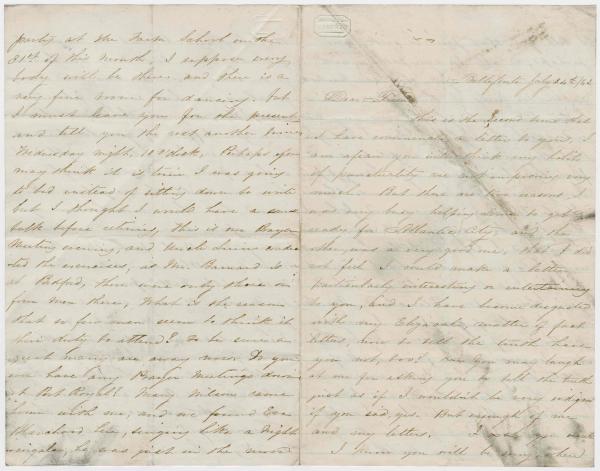 Bellefonte July 24th/62
Dear Friend
This is the second time that
I have commenced a letter to you, I
am afraid you will think my habits
of punctuality are not improving very
much. But there are two reasons, I
was very busy helping to get
ready for Atlantic City, and the
other was a very good one, that I did
not feel I could make a letter
particularly interesting or entertaining
to you, and I have become disgusted
with my matter of fact
letters, now to tell the truth have
you not, too? You may laugh
at me for asking you to tell the truth
just as if I wouldn't be very indignant
if you said, yes. But enough of me
and my letters. I you
I know you will be sorry when
party at the Farm School on the
31st of this month, I suppose every
body will be there and there is a
very fine room for dancing. but
I must leave you for the present
and tell you the rest another time
Wednesday night, 10 o'clock, Perhaps you
may think it is time I was going
to bed instead of sitting down to write
but I thought I would have a
talk before retiring, this is our Prayer
Meeting evening, and Uncle
ted the exercises, as Mr. Barnard is
at Bedford, there were only three or
four men there, What is the reason
that so few men seem to think it
their duty to attend? To be sure a
great many are away now. Do you
ever have any Prayer Meetings down
at Port Royal? Mary Wilson came
home with me, and we found
here, singing like a night
ingale, he was just in the mood